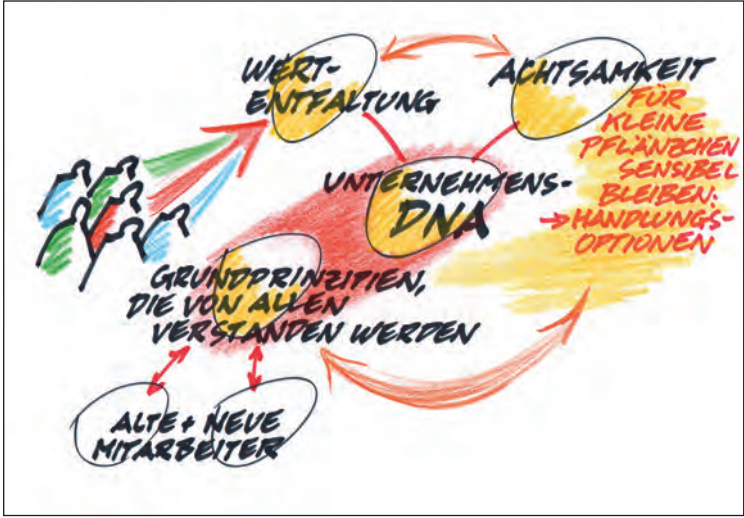 WERT-
ENTFALTUNG
ACHTSAMKEIT
FÜR
KLEINE
PFLÄNZCHEN
SENSIBEL
BLEIBEN:
→ HANDLUNGS-
OPTIONEN
UNTERNEHMENS-
DNA
GRUNDPRINZIPIEN,
DIE VON ALLEN
VERSTANDEN WERDEN
ALTE + NEUE
MITARBEITER